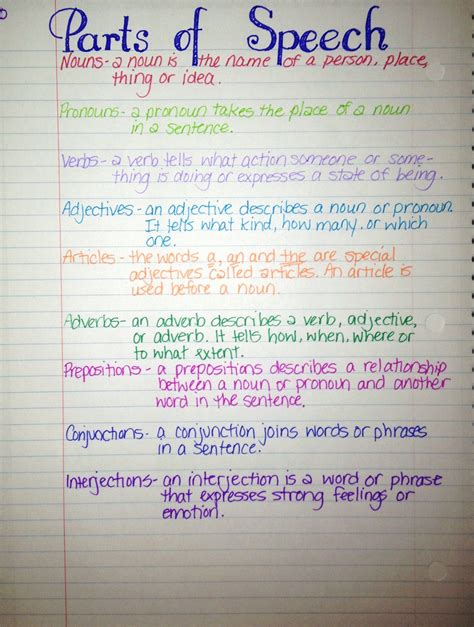 Parts of Speech
Nouns- a noun is the name of a person, place,
thing or idea.
Pronouns- a pronoun takes the place of a noun
in a sentence.
Verbs- a verb tells what action someone or some-
thing is doing or expresses a state of being.
Adjectives- an adjective describes a noun or pronoun.
It tells what kind, how many, or which
one.
Articles- the words a, an and the are special
adjectives called articles. An article is
used before a noun.
Adverbs- an adverb describes a verb, adjective,
or adverb. It tells how, when, where or
to what extent.
Prepositions- a prepositions describes a relationship
between a noun or pronoun and another
word in the sentence.
Conjunctions- a conjunction joins words or phrases
in a sentence.
Interjections- an interjection is a word or phrase
that expresses strong feelings or
emotion.